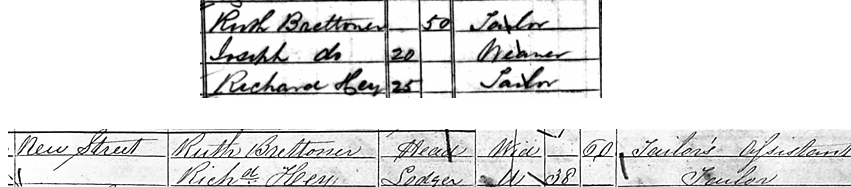 Ruth Brettoner 50 Tailor
Joseph do 20 Weaver
Richard Hey 25 Tailor
New Street Ruth Brettoner Head Wid 60 Tailor's Assistant
Richd Hey Lodger U 38 Tailor